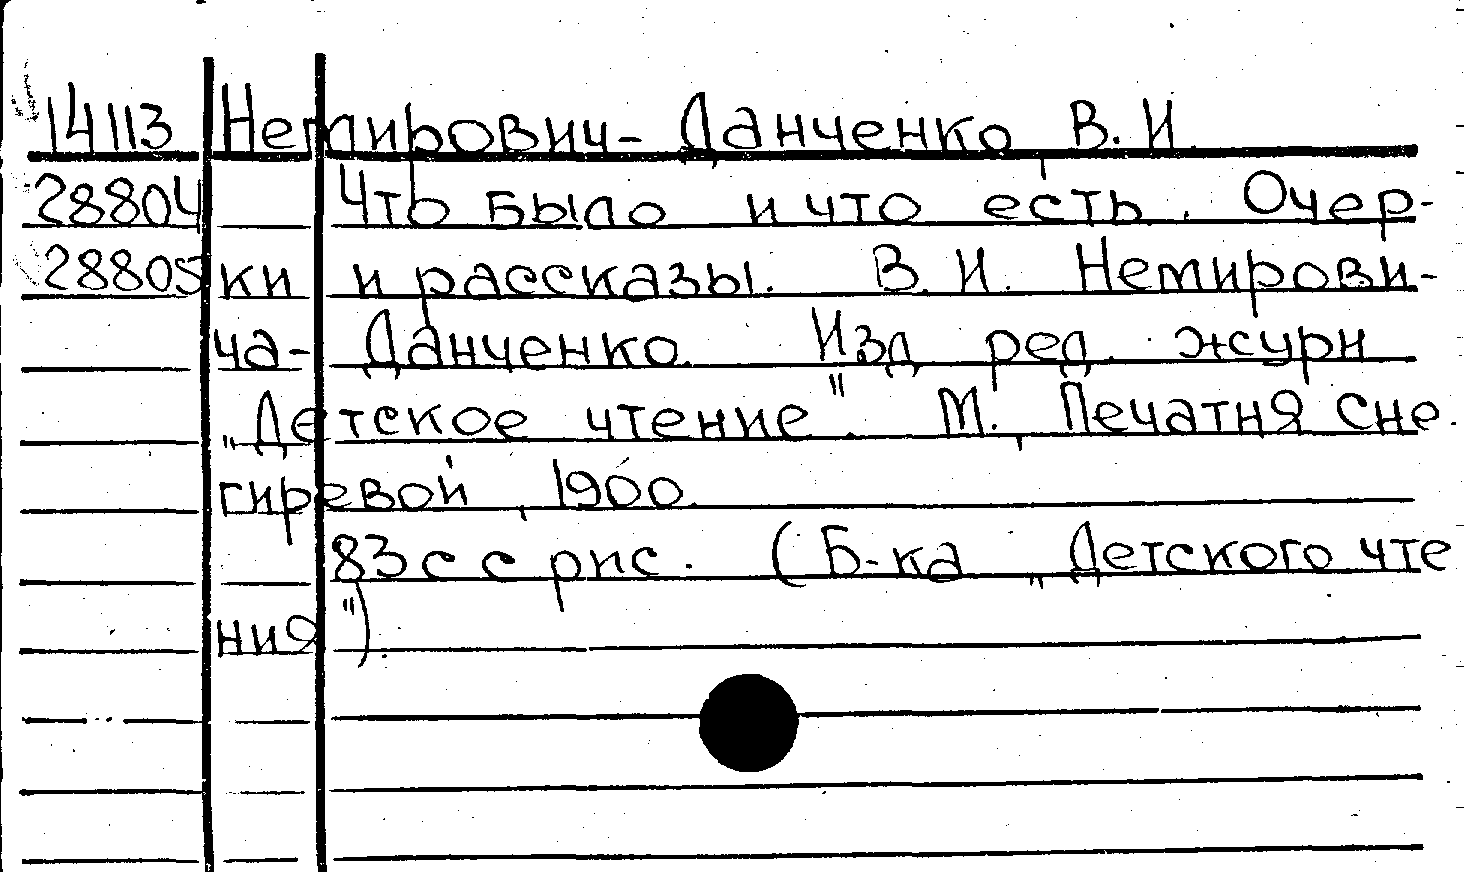 14113 Немирович-Данченко, В. И.
28804 Что было и что есть. Очер-
28805 ки и рассказы. В. И. Немирови-
ча-Данченко. Изд. ред. журн
„Детское чтение". М., Печатня Сне
гиревой, 1900.
83 с с рис. (Б-ка „Детского чте
ния").